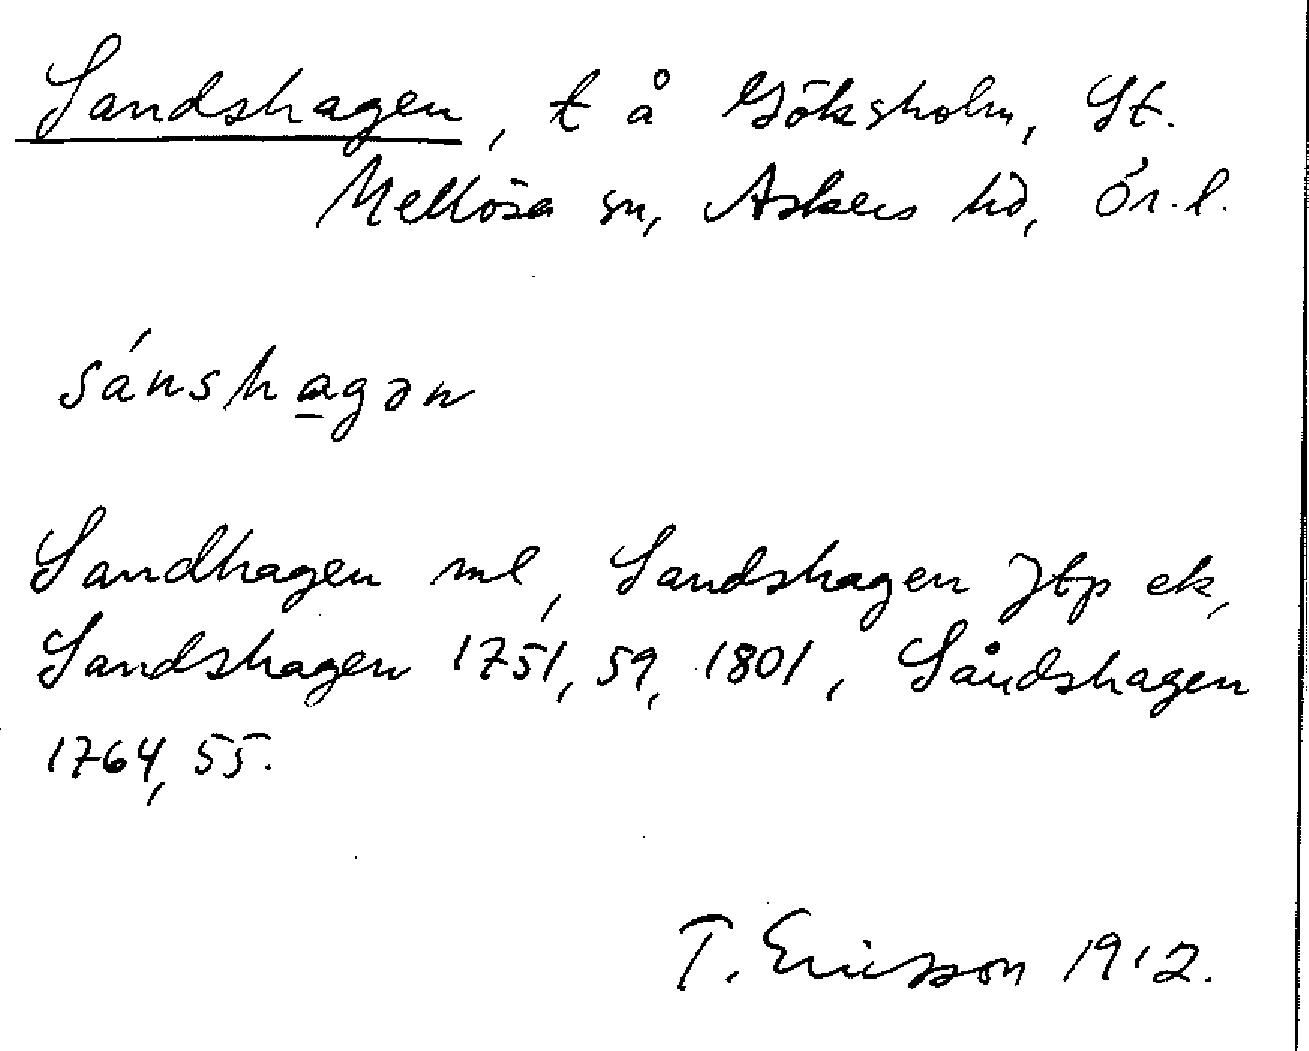 Sandshagen, t å Göksholm, St.
Mellösa sn, Askers hd, Ör. l.
sánshagən
Sandhagen ml, Sandshagen Jbp ek,
Sandshagen 1751, 59, 1801, Såndshagen
1764, 55.
T. Ericsson 1912.